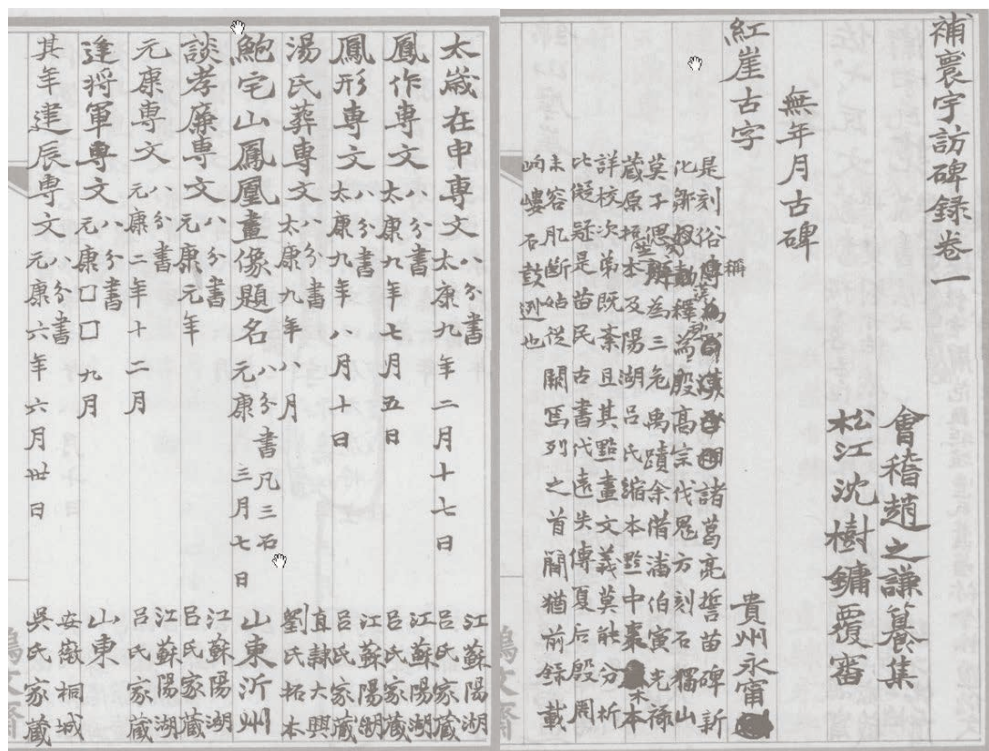 補寰宇訪碑錄卷一
會稽趙之謙纂集
松江沈樹鏞覆審
無年月古碑
紅崖古字
貴州永甯
是刻俗稱諸葛亮誓苗碑新
化鄒叔勣釋為殷高宗伐鬼方刻石獨山
莫子偲辨為三危禹蹟余借潘伯寅光祿
藏原拓本及陽湖呂氏縮本黔中棗木本
詳校次弟既紊且其點畫文義莫能分析
比擬疑是苗民古書代遠失傳夏后殷周
未容肊斷姑從闕焉列之首簡猶前錄載
岣嶁石鼓例也
太歲在申專文 八分書 太康九年二月十七日 江蘇陽湖呂氏家藏
鳳作專文 八分書 太康九年七月五日 江蘇陽湖呂氏家藏
鳳形專文 八分書 太康九年八月十日 江蘇陽湖呂氏家藏
湯氏葬專文 八分書 太康九年八月 直隸大興劉氏拓本
鮑宅山鳳凰畫像題名 八分書凡三石 元康 三月七日 山東沂州
談孝廉專文 八分書 元康元年 江蘇陽湖呂氏家藏
元康專文 八分書 元康二年十二月 江蘇陽湖呂氏家藏
逢將軍專文 八分書 元康□□九月 山東
其年建辰專文 八分書 元康六年六月卅日 安徽桐城吳氏家藏